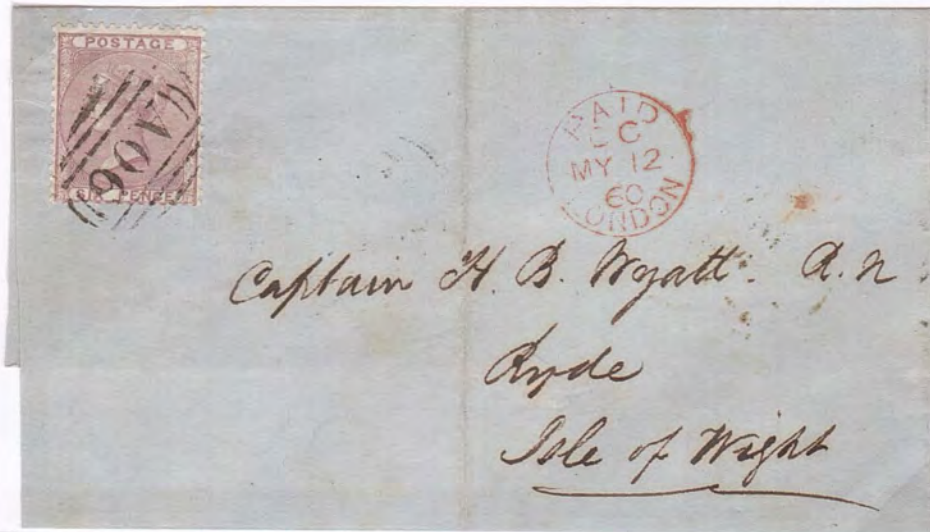 POSTAGE
A06
SIX PENCE
PAID
CC
MY 12
60
LONDON
Captain H. B. Wyatt. R. N
Ryde
Isle of Wight